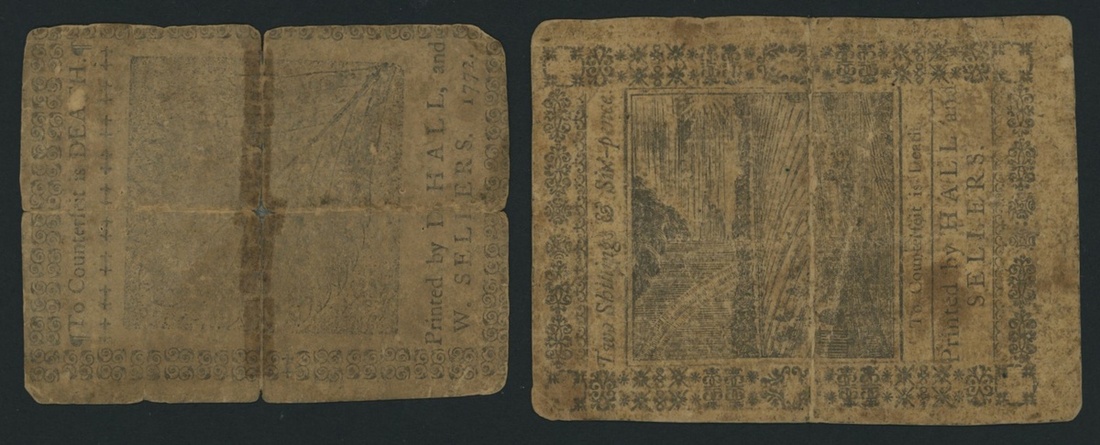 ¶To Counterfeit is DEATH.¶
Printed by D. HALL, and
W. SELLERS. 1772.
Two Shillings & Six-pence
To Counterfeit is Death.
Printed by HALL and
SELLERS.